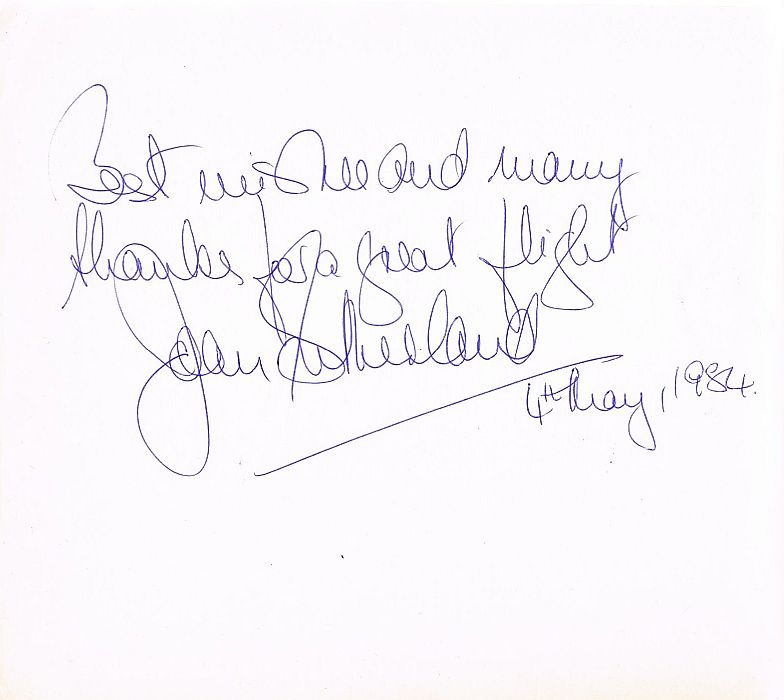 Best wishes and many
thanks for a great flight
Joan Sutherland
4th May, 1984.